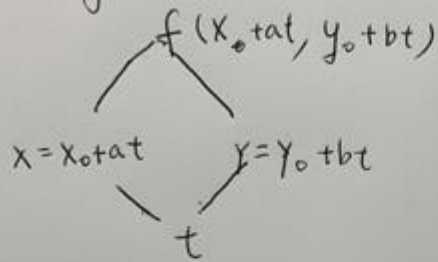 f(x₀+at, y₀+bt)
x=x₀+at y=y₀+bt
t